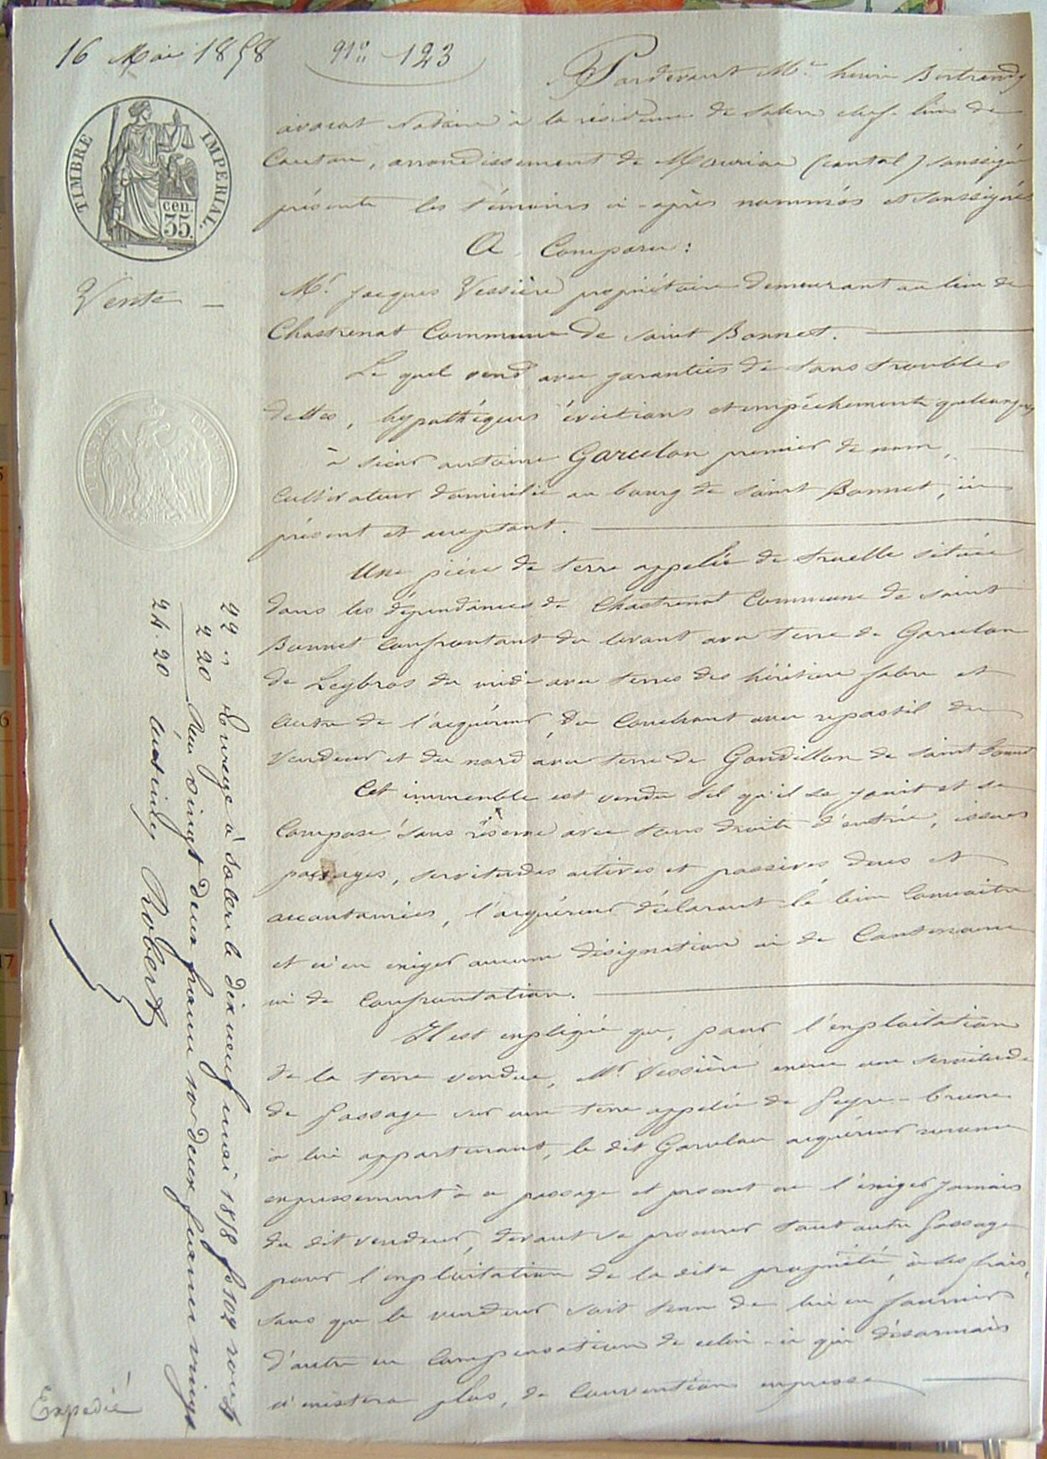 16 Mai 1858
N° 123
TIMBRE IMPÉRIAL.
cen.
35.
Vente
Pardevant Me henri Bertrandy
avocat Notaire à la résidence de Salers chef-lieu de
Canton, arrondissement de Mauriac (cantal) soussigné
présents les témoins ci-après nommés et soussignés
A Comparu:
Mr. Jacques Vessière propriétaire demeurant au lieu de
Chastrenat Commune de saint Bonnet.
Le quel vend avec garanties de tous troubles
dettes, hypothèques évictions et empêchements quelconques
à sieur antoine Garcelon premier de nom,
Cultivateur domicilié au bourg de saint Bonnet, ici
présent et acceptant.
Une pièce de terre appelée de truelle située
dans les dépendances de Chastrenat Commune de saint
Bonnet Confrontant du levant avec terre de Garcelon
de Leybros du midi avec terres des héritiers fabre et
autre de l'acquéreur, du Couchant avec repastil du
Vendeur et du nord avec terre de Gandillon de saint Bonnet
Cet immeuble est vendu tel qu'il se jouit et se
Compose sans réserve avec tous droits d'entrée, issues
passages, servitudes actives et passives dues et
accoutumées, l'acquéreur déclarant le bien Connaitre
et n'en exiger aucune désignation ni de Contenance
ni de Confrontation.
Il est expliqué que, pour l'exploitation
de la terre vendue, Mr Vessière exerce une servitude
de passage sur une terre appelée de Peyre-brune
à lui appartenant, le dit Garcelon acquéreur renonce
expressement à ce passage et promet ne l'éxiger jamais
du dit vendeur, devant se procurer tout autre passage
pour l'exploitation de la dite propriété, à ses frais,
sans que le vendeur soit tenu de lui en fournir
d'autre en Compensation de celui-ci qui désormais
n'existera plus, de Convention expresse
22 "
2 20
24. 20
Enregé à Salers le dix neuf mai 1858 fo 102
Reçu vingt deux francs deux francs vingt
centimes Robert
Expédié